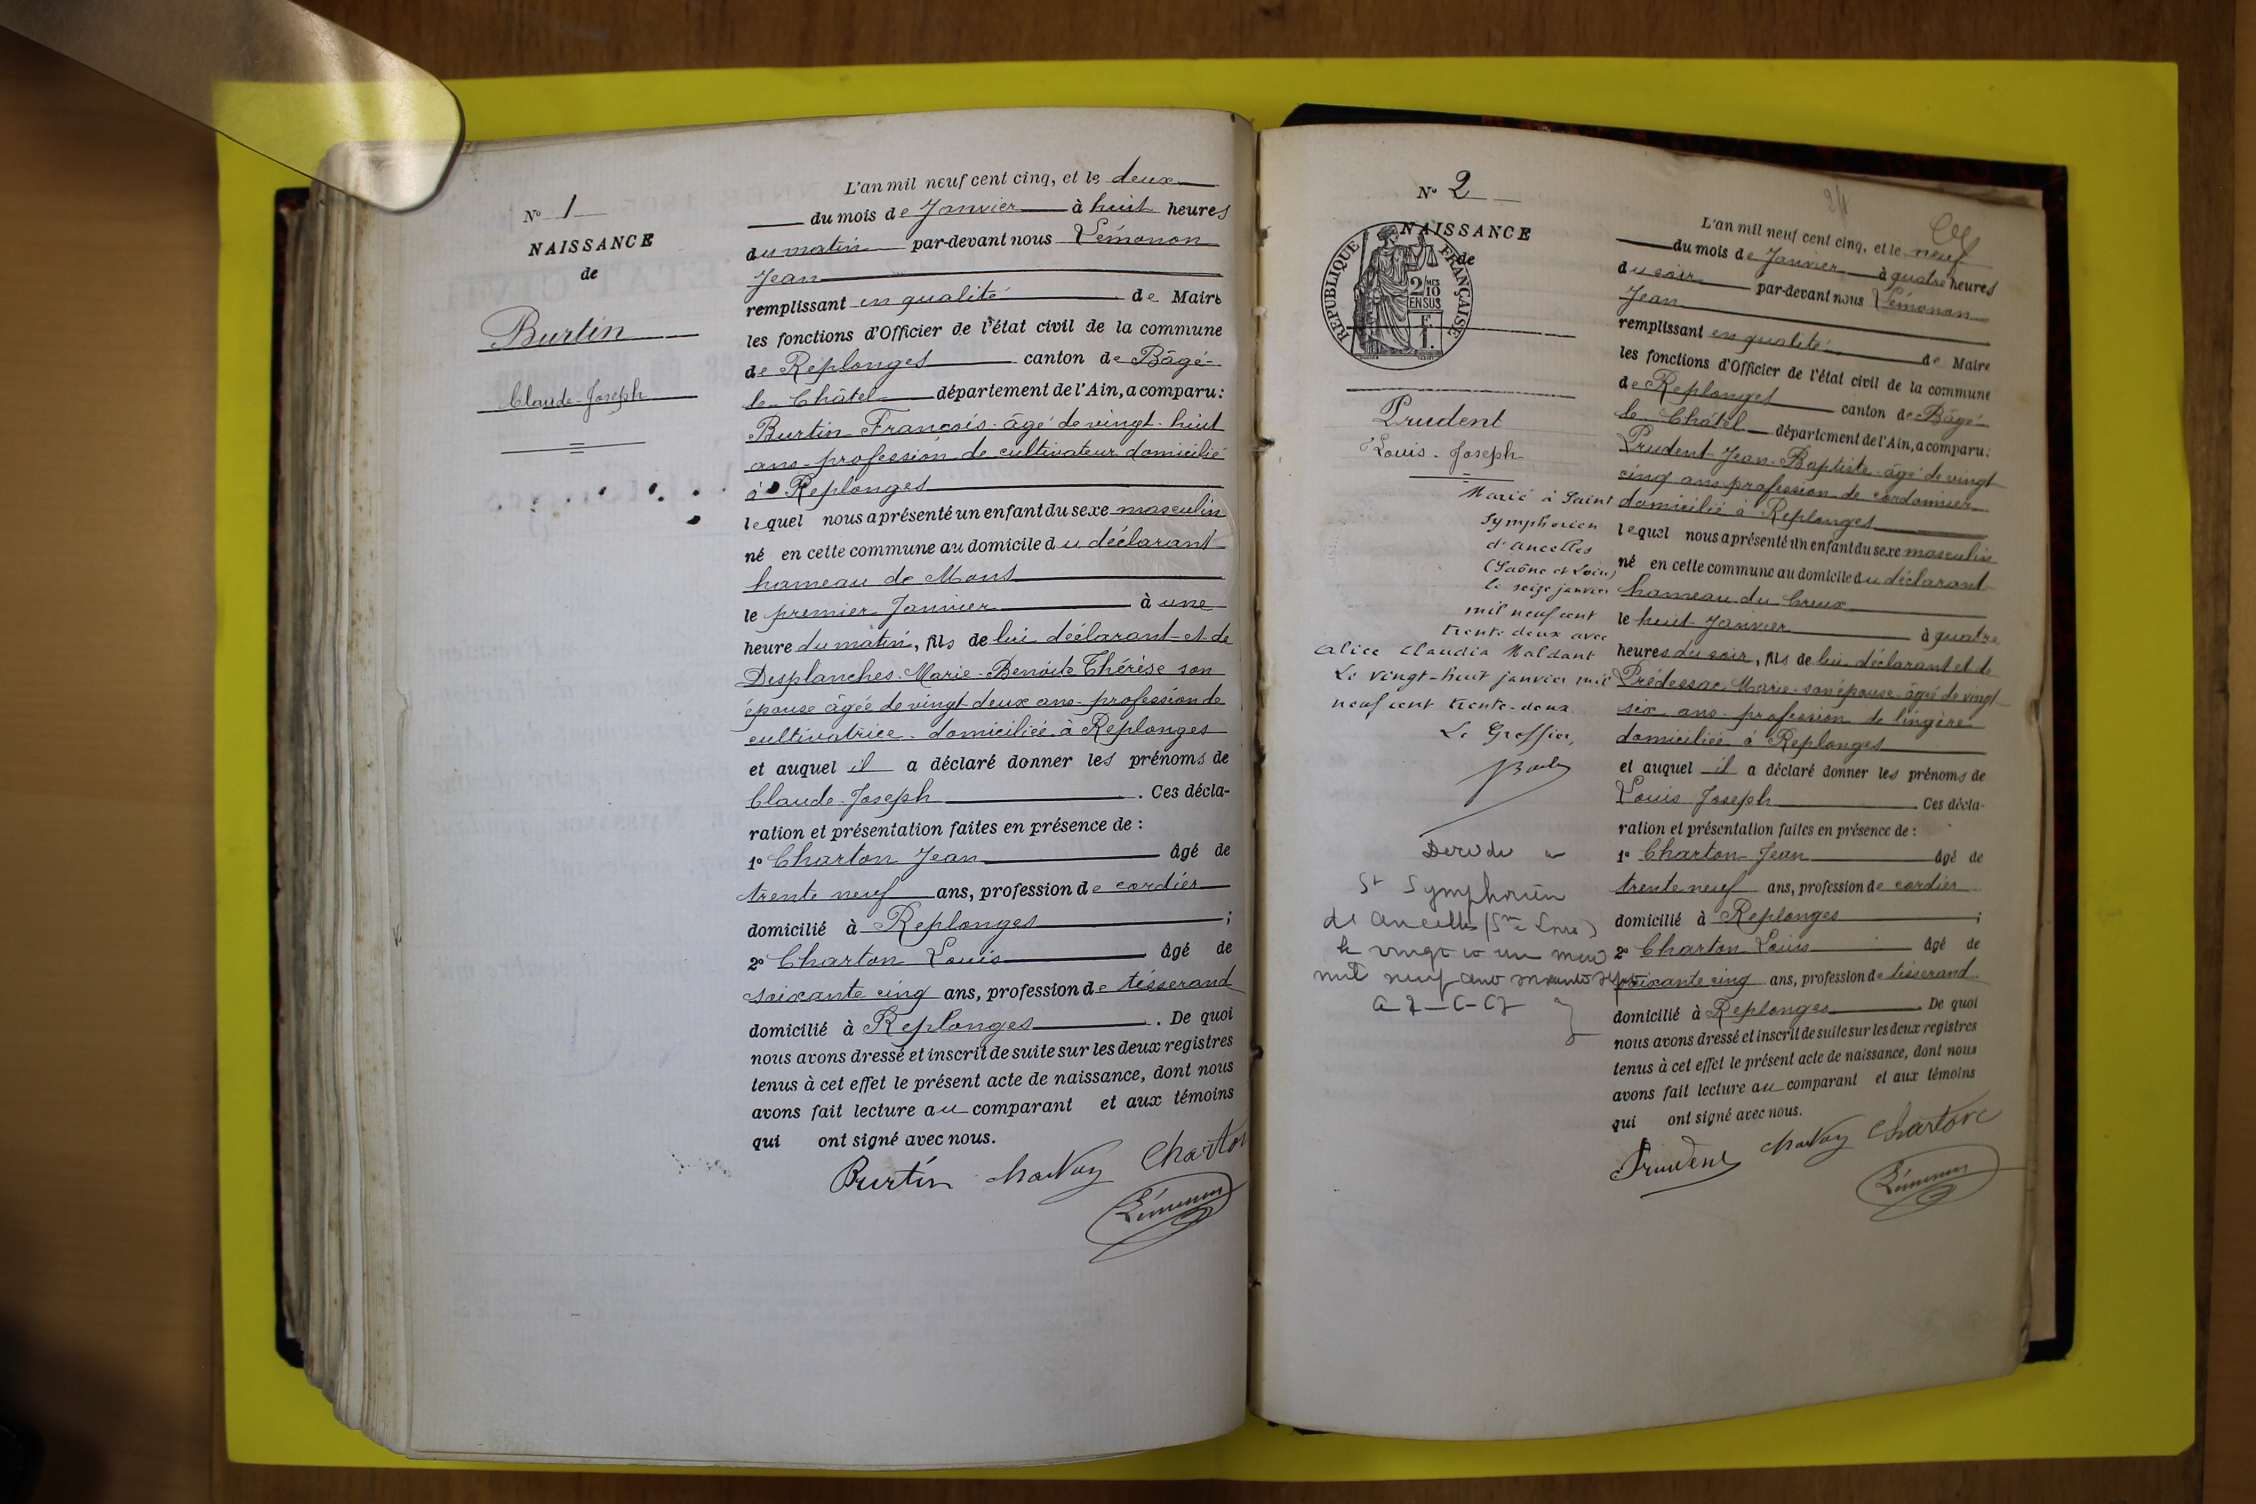 N° 1
NAISSANCE
de
Burtin
Claude-Joseph
L'an mil neuf cent cinq, et le deux
du mois de Janvier à huit heures
du matin par-devant nous Lémonon
Jean
remplissant en qualité de Maire
les fonctions d'Officier de l'état civil de la commune
de Replonges canton de Bâgé-
le-Châtel département de l'Ain, a comparu:
Burtin François âgé de vingt-huit
ans profession de cultivateur domicilié
à Replonges
lequel nous a présenté un enfant du sexe masculin
né en cette commune au domicile du déclarant
hameau de Mons
le premier Janvier à une
heure du matin, fils de lui déclarant et de
Desplanches Marie-Benoite Thérèse son
épouse âgée de vingt-deux ans profession de
cultivatrice domiciliée à Replonges
et auquel il a déclaré donner les prénoms de
Claude-Joseph. Ces décla-
ration et présentation faites en présence de :
1° Charton Jean âgé de
trente neuf ans, profession de cordier
domicilié à Replonges ;
2° Charton Louis âgé de
soixante cinq ans, profession de tisserand
domicilié à Replonges. De quoi
nous avons dressé et inscrit de suite sur les deux registres
tenus à cet effet le présent acte de naissance, dont nous
avons fait lecture au comparant et aux témoins
qui ont signé avec nous.
Burtin Charton
Lémonon
N° 2
NAISSANCE
de
REPUBLIQUE FRANÇAISE
2/10
EN SUS
Prudent
Louis-Joseph
Marié à Saint
Symphorien
d'Ancelles
(Saône et Loire)
le seize janvier
mil neuf cent
trente deux avec
Alice Claudia Maldant
Le vingt-huit janvier mil
neuf cent trente-deux
Le Greffier,
Décédé à
St Symphorien
de Ancelles (Sne Loire)
le vingt et un
mil neuf cent
24
L'an mil neuf cent cinq, et le neuf
du mois de Janvier à quatre heures
du soir par-devant nous Lémonon
Jean
remplissant en qualité de Maire
les fonctions d'Officier de l'état civil de la commune
de Replonges canton de Bâgé-
le-Châtel département de l'Ain, a comparu:
Prudent Jean-Baptiste âgé de vingt
cinq ans profession de cordonnier
domicilié à Replonges
lequel nous a présenté un enfant du sexe masculin
né en cette commune au domicile du déclarant
hameau du Creux
le huit Janvier à quatre
heures du soir, fils de lui déclarant et de
Prédessac Marie son épouse âgée de vingt
six ans profession de lingère
domiciliée à Replonges
et auquel il a déclaré donner les prénoms de
Louis Joseph Ces décla-
ration et présentation faites en présence de :
1° Charton Jean âgé de
trente neuf ans, profession de cordier
domicilié à Replonges ;
2° Charton Louis âgé de
soixante cinq ans, profession de tisserand
domicilié à Replonges De quoi
nous avons dressé et inscrit de suite sur les deux registres
tenus à cet effet le présent acte de naissance, dont nous
avons fait lecture au comparant et aux témoins
qui ont signé avec nous.
Prudent Charton
Lémonon